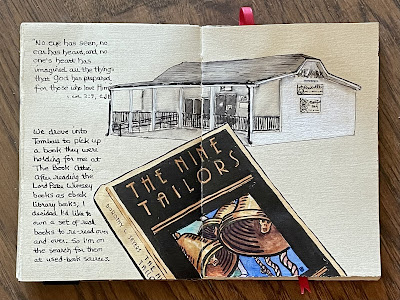 "No eye has seen, no
ear has heard, and no
one's heart has
imagined all the things
that God has prepared
for those who love Him.
1 Cor. 2:9,
We drove into
Tomball to pick up
a book they were
holding for me at
The Book Attic.
After reading the
Lord Peter Wimsey
books as ebook
library books, I
decided I'd like to
own a set of real
books to re-read over
and over. So I'm on
the search for them
at used-book sources.
THE NINE
TAILORS
DOROTHY L. SAYERS THE